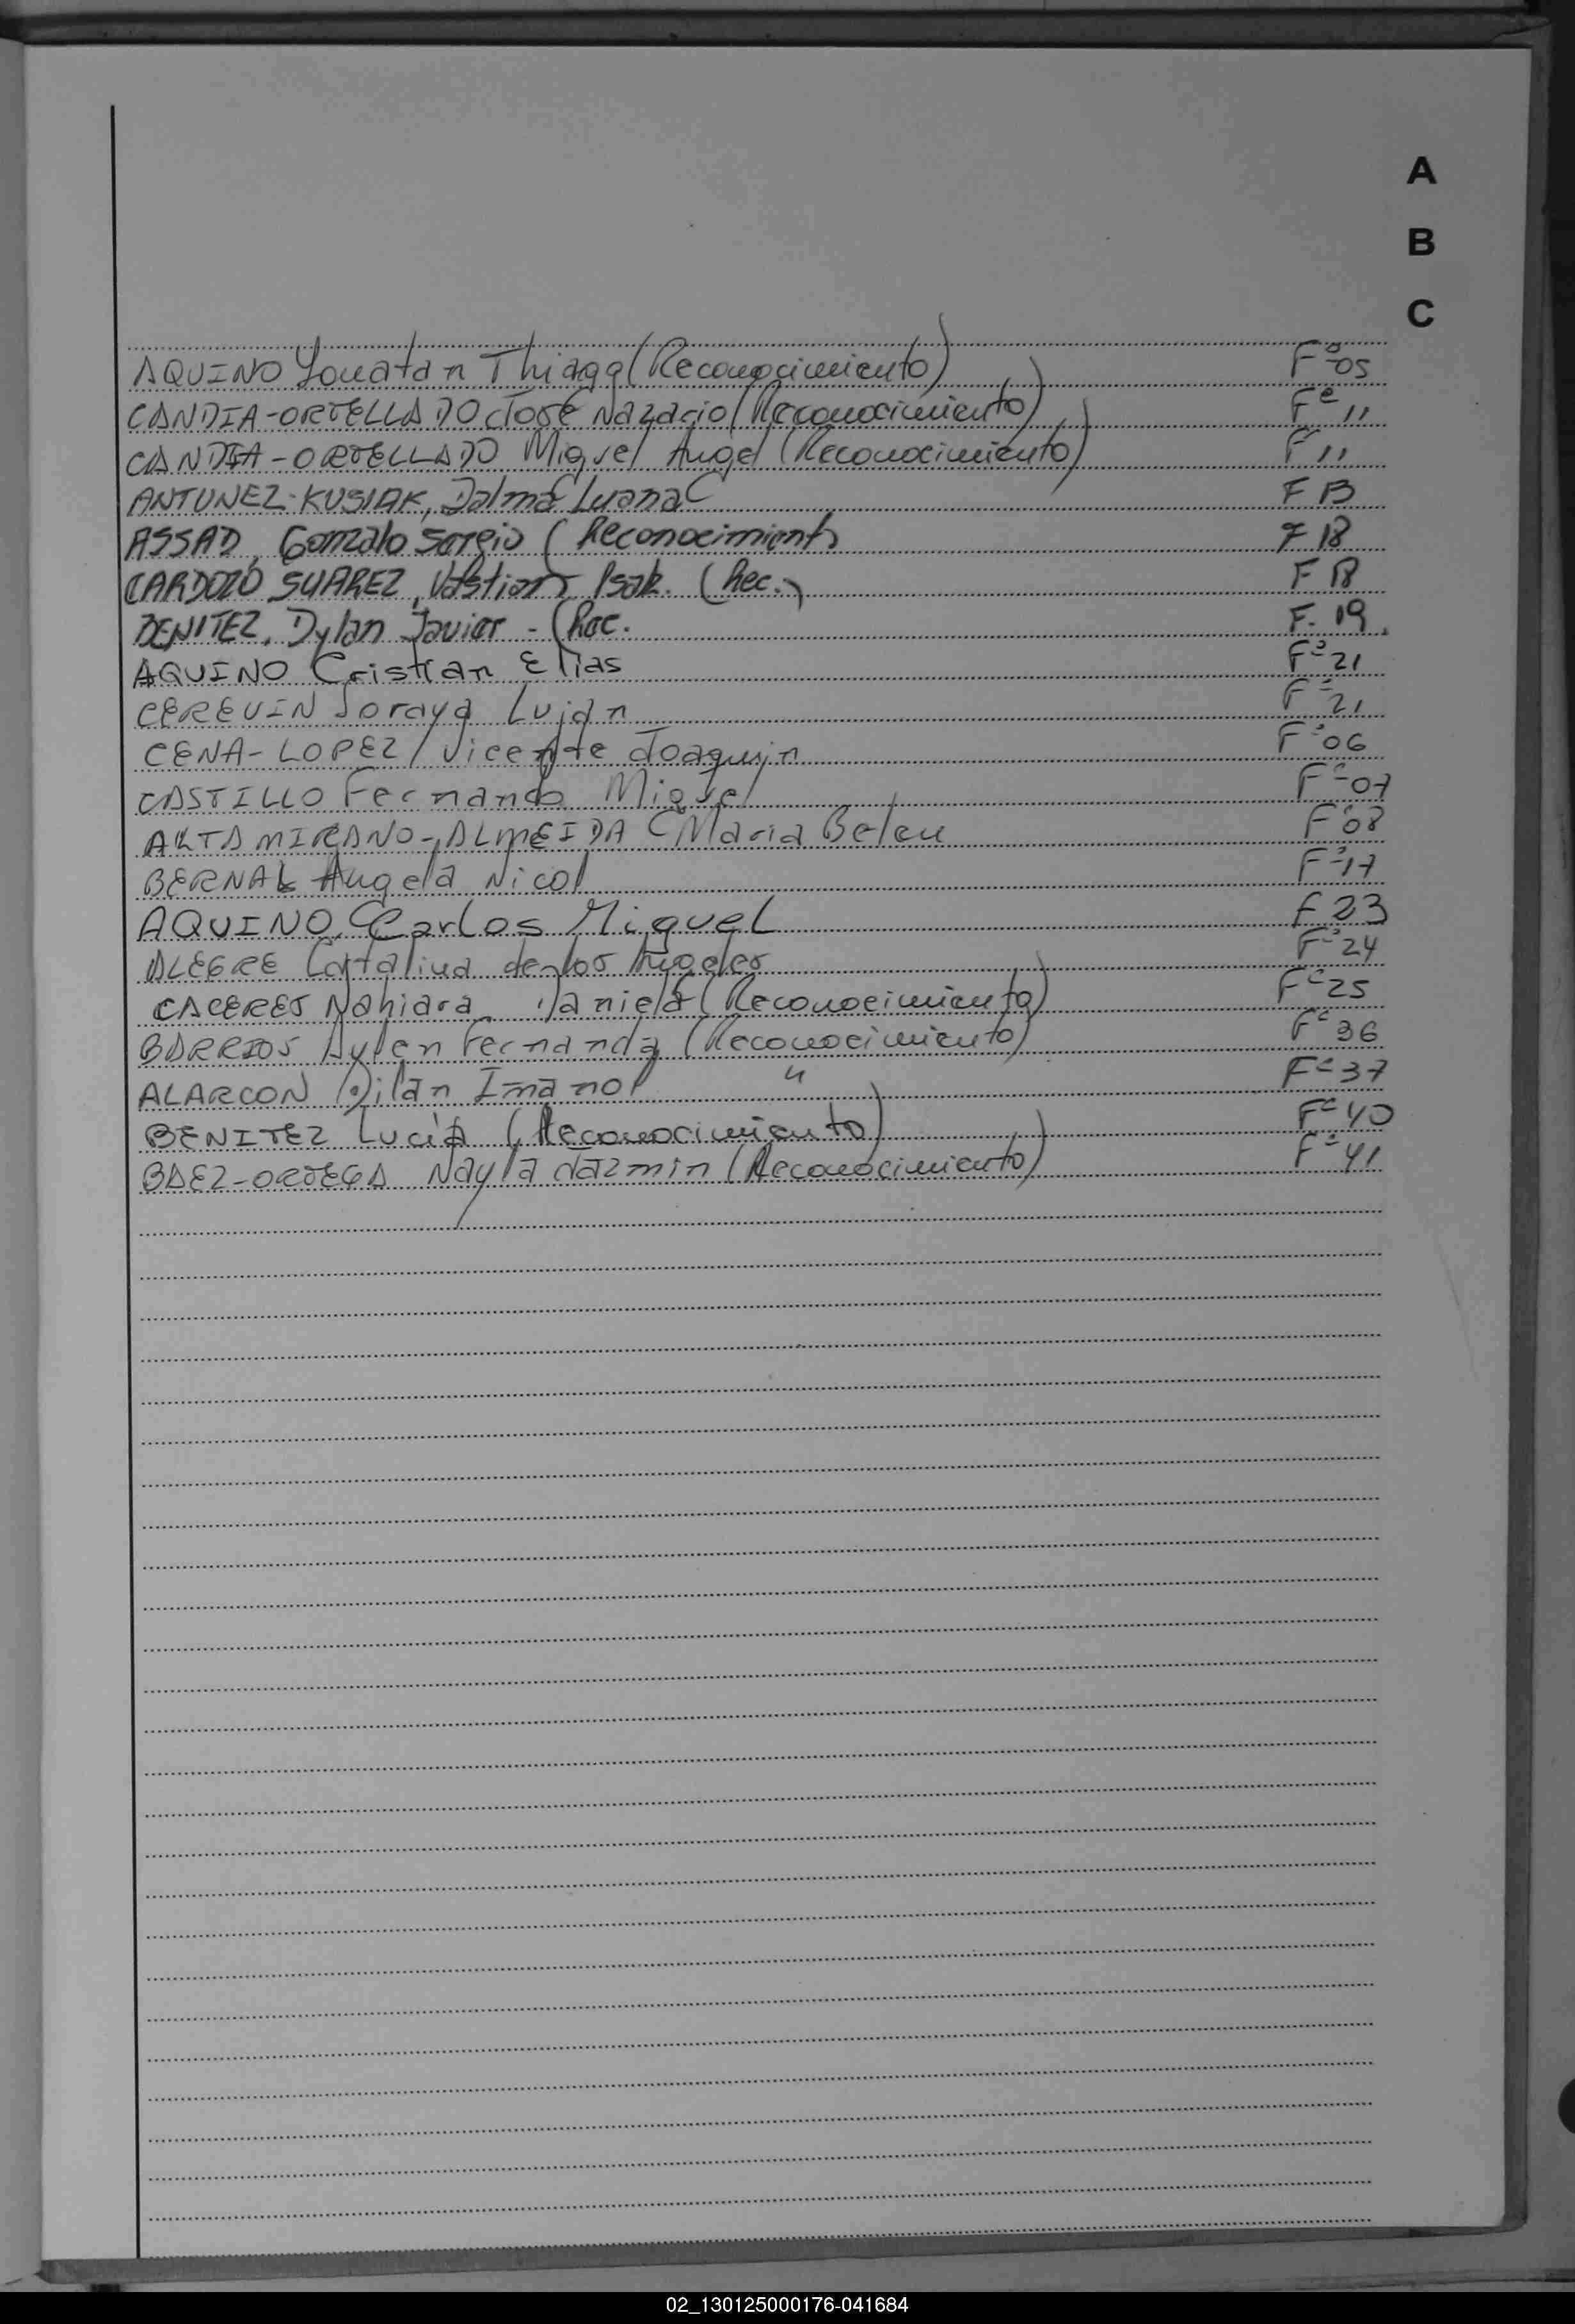 A
B
C
AQUINO Yonatan Thiago (Reconocimiento) Fº 05
CANDIA-ORTELLADO José Nazario (Reconocimiento) Fº 11
CANDIA-ORTELLADO Miguel Angel (Reconocimiento) Fº 11
ANTUNEZ-KUSIAK, Dalma Luana F 13
ASSAD, Gonzalo Sergio (Reconocimiento F 18
CARDOZO SUAREZ, Isak. (Rec.) F 18
BENITEZ, Dylan Javier - (Rec. F. 19.
AQUINO Cristian Elias Fº 21
CEREVIN Soraya Lujan Fº 21
CENA-LOPEZ Vicente Joaquin Fº 06
CASTILLO Fernando Miguel Fº 07
ALTAMIRANO-ALMEIDA Maria Belen Fº 08
BERNAL Angela Nicol Fº 17
AQUINO, Carlos Miguel F 23
ALEGRE Catalina de los Angeles Fº 24
CACERES Nahiara Daniela (Reconocimiento) Fº 25
BARRIOS Aylen Fernanda (Reconocimiento) Fº 36
ALARCON Dilan Imanol " Fº 37
BENITEZ Lucía (Reconocimiento) Fº 40
BAEZ-ORTEGA Nayla Jazmin (Reconocimiento) Fº 41
02_130125000176-041684